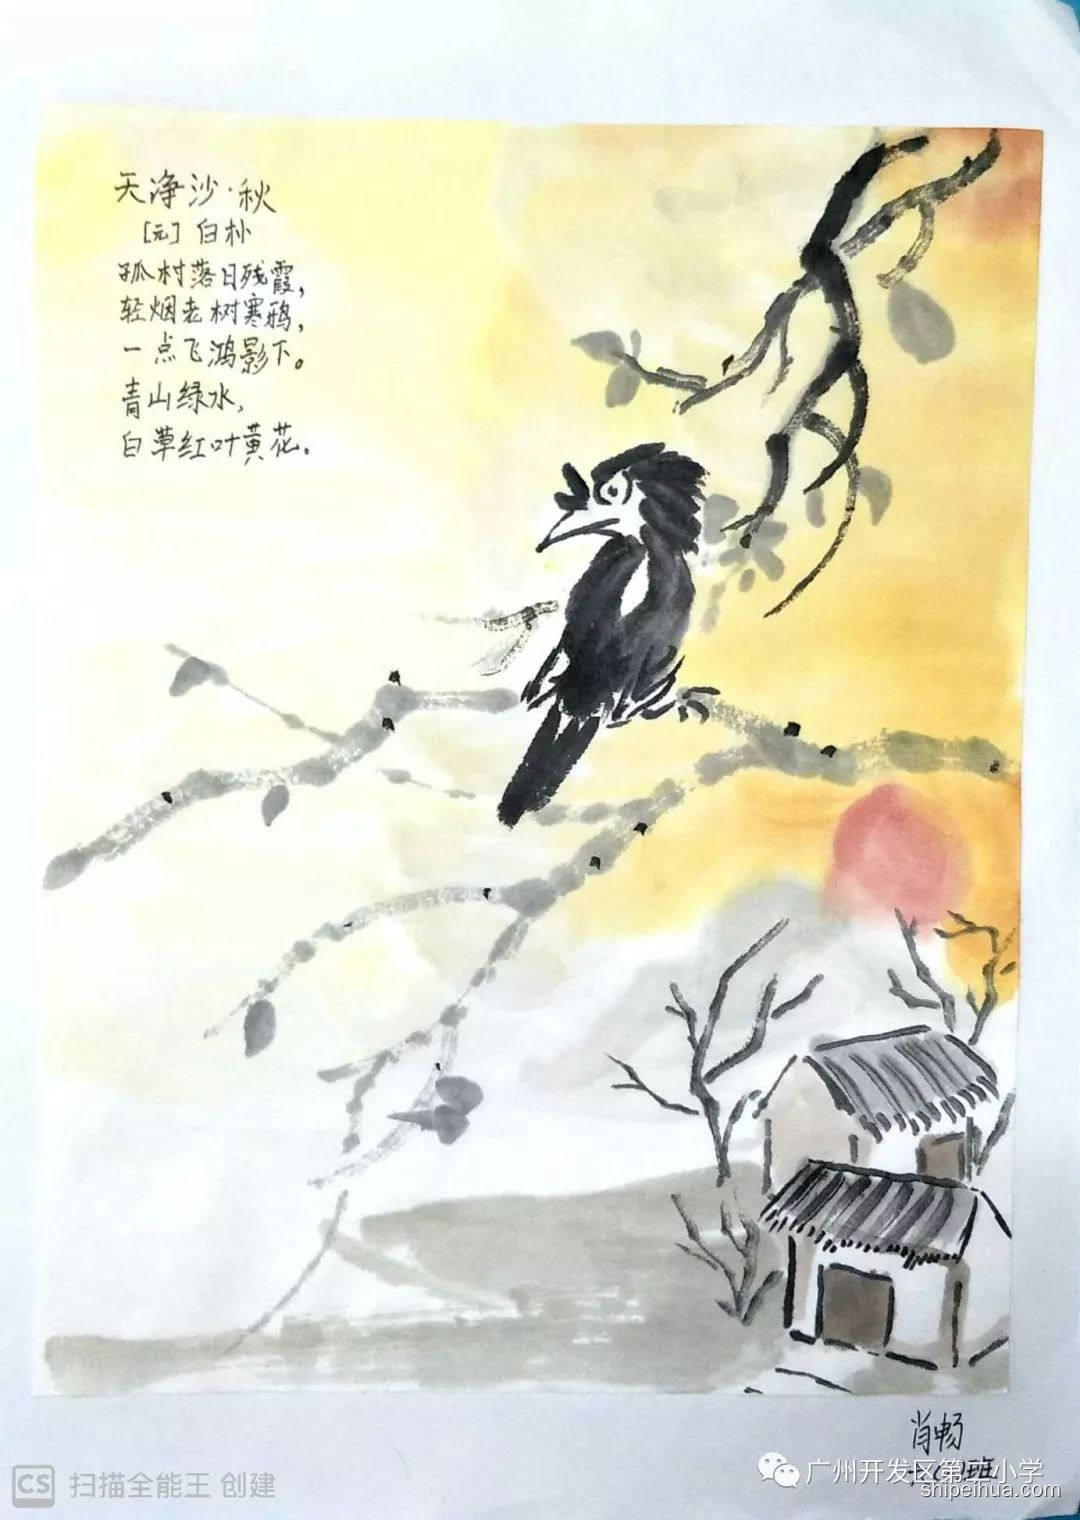 天净沙·秋
[元] 白朴
孤村落日残霞，
轻烟老树寒鸦，
一点飞鸿影下。
青山绿水，
白草红叶黄花。
肖畅
班
广州开发区第二小学
shipeihua.com
CS 扫描全能王 创建